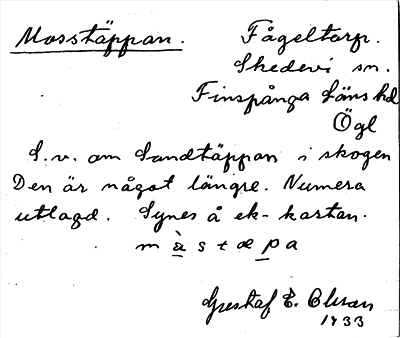 Mosstäppan. Fågeltorp.
Skedevi sn.
Finspånga läns hd
Ögl
S.v. om Sandtäppan i skogen
Den är något längre. Numera
utlagd. Synes å ek-kartan.
m à s t æ p a
Gustaf E. Olsson
1933